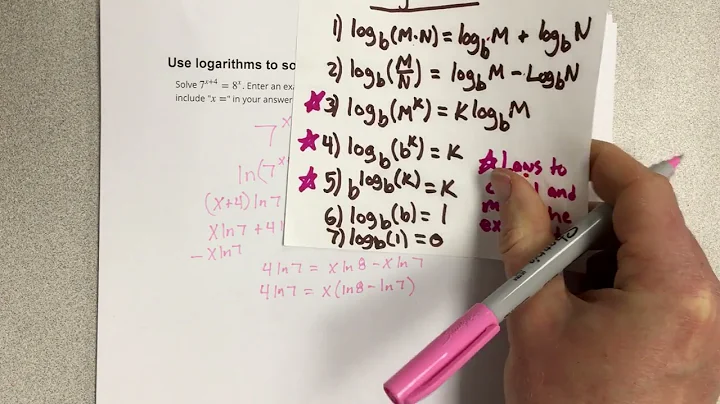 1) log_b(M·N) = log_b M + log_b N
2) log_b(M/N) = log_b M - Log_b N
☆ 3) log_b(M^K) = K log_b M
☆ 4) log_b(b^K) = K
☆ 5) b^log_b(K) = K
6) log_b(b) = 1
7) log_b(1) = 0
☆ Laws to
and
Use logarithms to so
Solve 7^(x+4) = 8^x. Enter an exa
include "x =" in your answer
7^x
ln(7^x
(x+4) ln 7
x ln 7 + 4 l
- x ln 7
4 ln 7 = x ln 8 - x ln 7
4 ln 7 = x(ln 8 - ln 7)
Sharpie